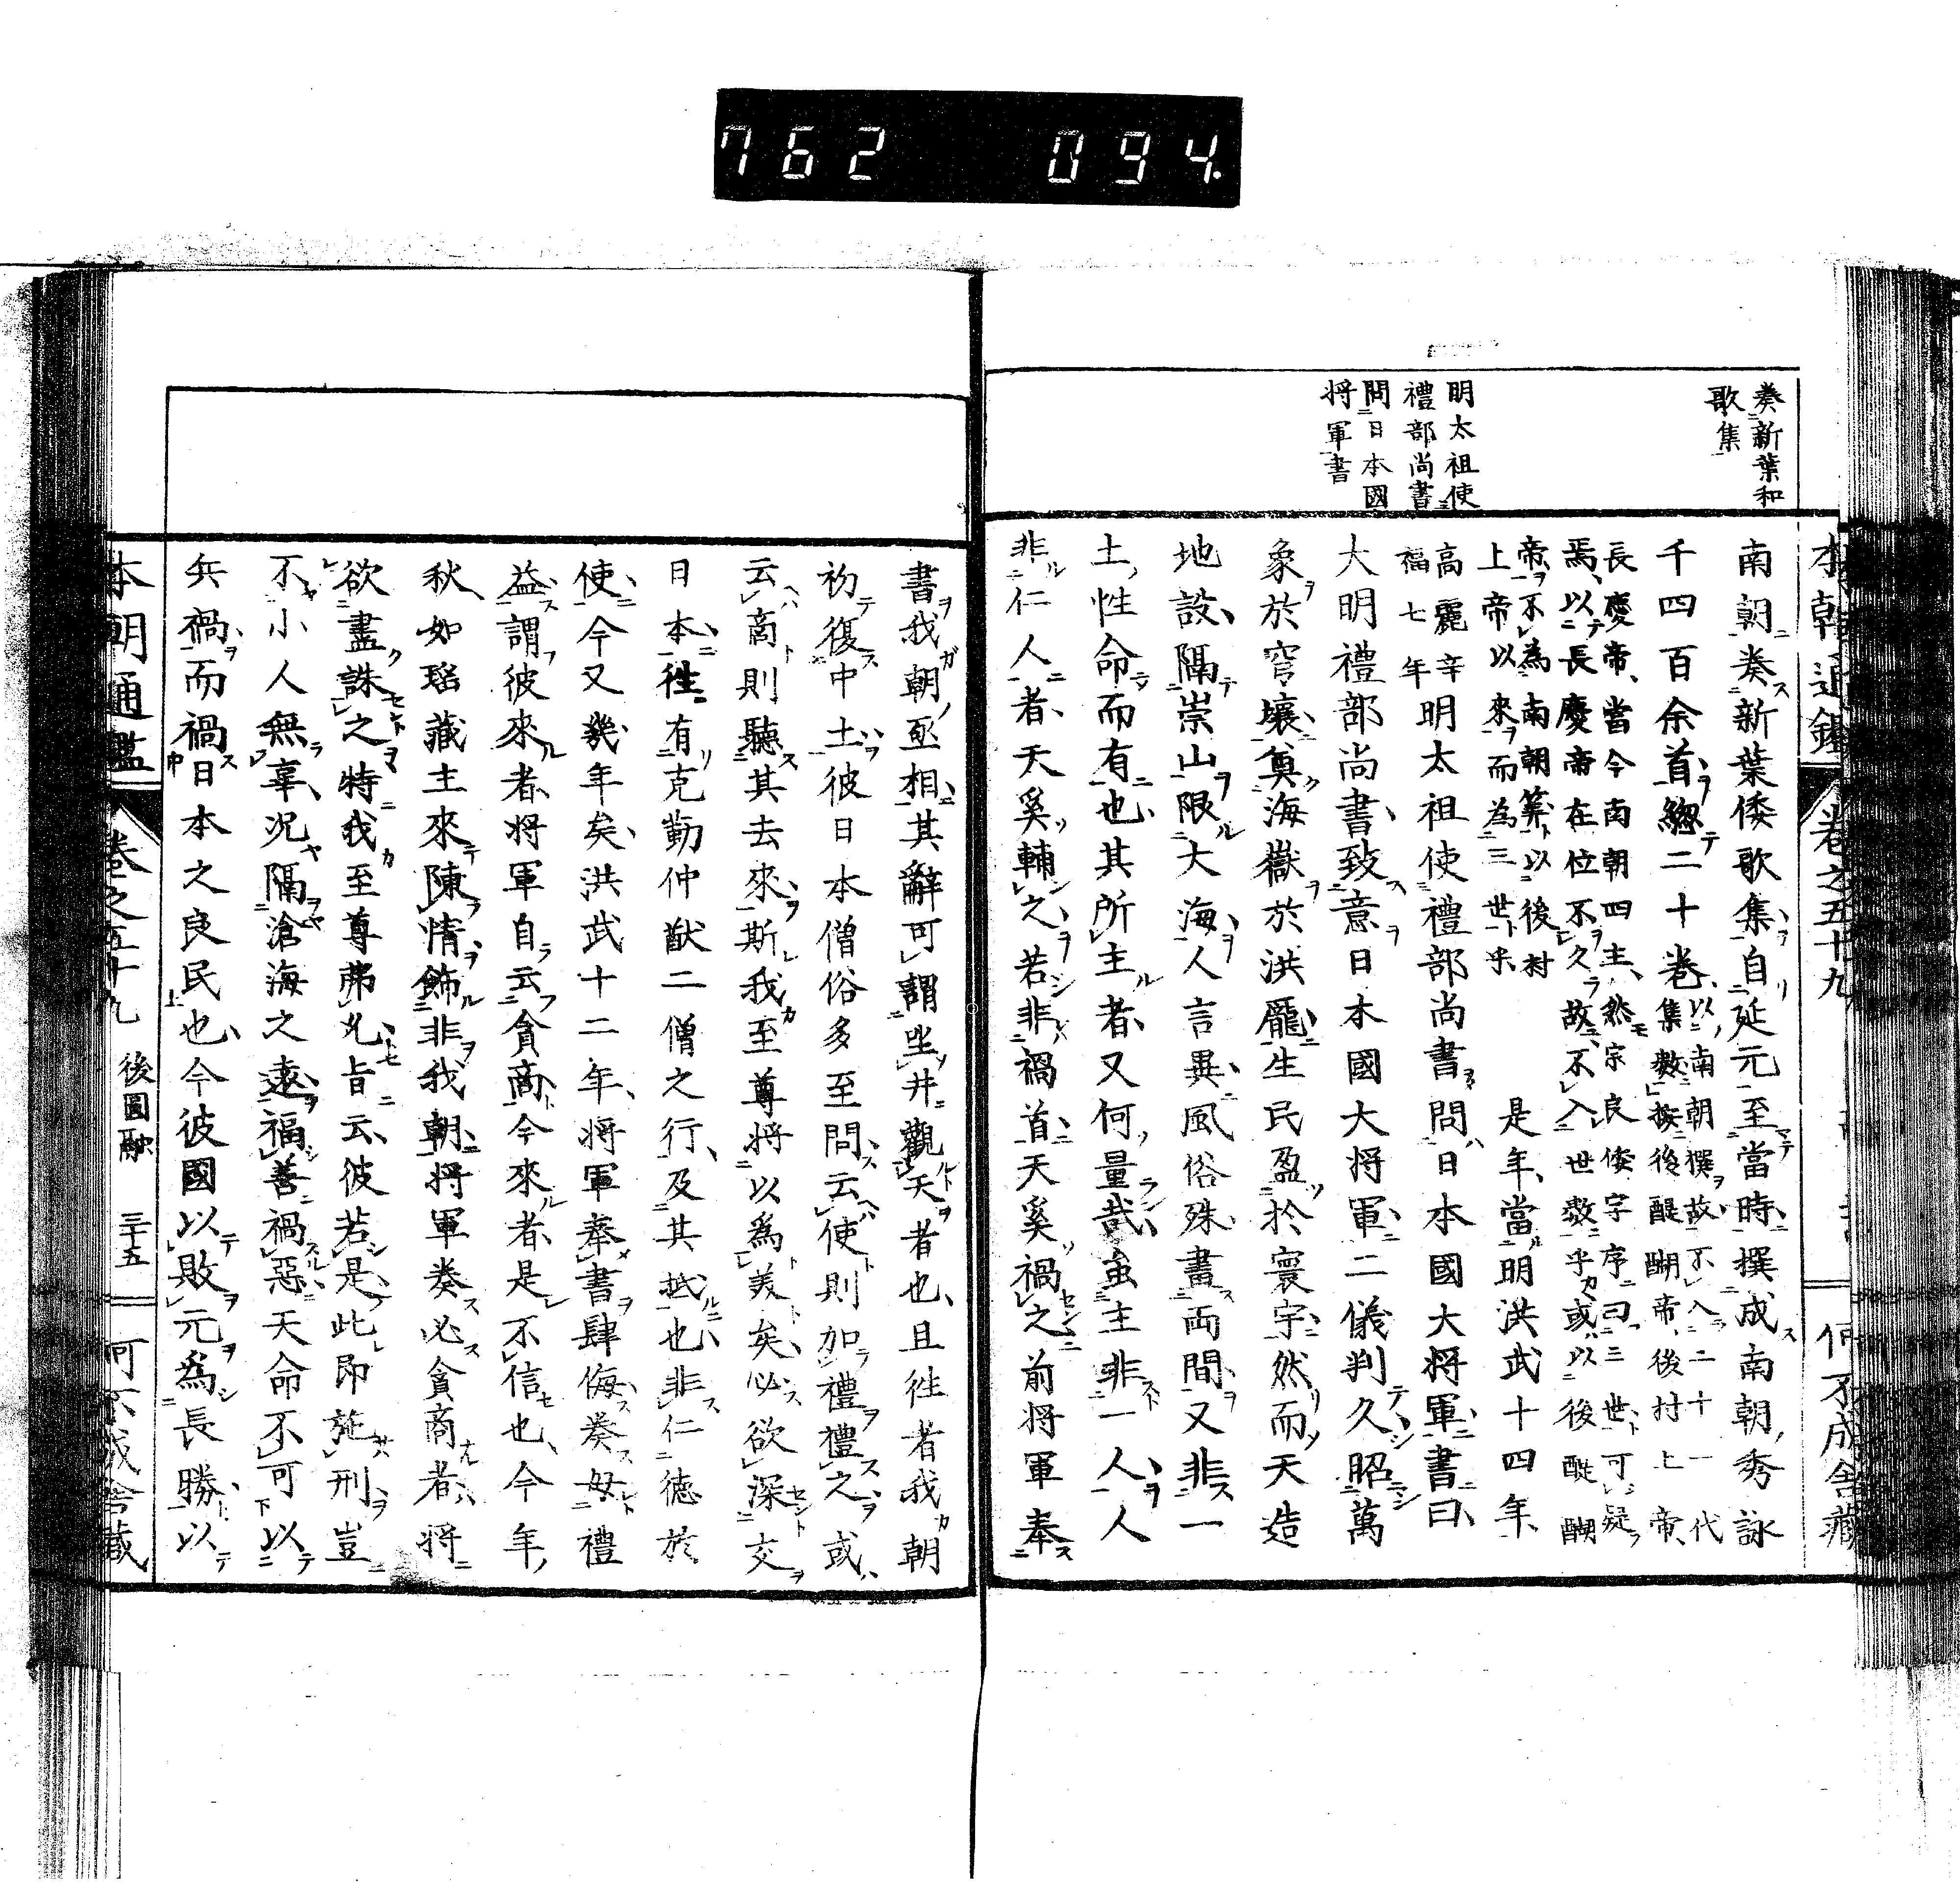 762 094.
奏新葉和
歌集
明太祖使
禮部尚書
問日本國
將軍書
南朝奏新葉倭歌集自延元至當時撰成南朝秀詠
千四百余首總二十卷以南朝撰故不入二十一代
集數按後醍醐帝後村上帝
長慶帝當今南朝四主然宗良倭字序曰三世可疑
焉以長慶帝在位不久故不入世數乎或以後醍醐
帝不為南朝筭以後村
上帝以來而為三世乎 是年當明洪武十四年
高麗辛
禑七年明太祖使禮部尚書問日本國大將軍書曰
大明禮部尚書致意日本國大將軍二儀判久昭萬
象於穹壤奠海嶽於洪龐生民盈於寰宇然而天造
地設隔崇山限大海人言異風俗殊畫両間又非一
土性命而有也其所主者又何量哉虽主非一人人
非仁人者天奚輔之若非禍首天奚禍之前將軍奉
書我朝亟相其辭可謂坐井觀天者也且徃者我朝
初復中土彼日本僧俗多至問云使則加禮禮之或
云商則聽其去來斯我至尊將以為羙矣必欲深交
日本徃有克勤仲猷二僧之行及其抵也非仁德於
使今又幾年矣洪武十二年將軍奉書肆侮奏毋禮
益謂彼來者將軍自云貪商今來者是不信也今年
秋如瑤藏主來陳情飾非我朝將軍奏必貪商者將
欲盡誅之特我至尊弗允旨云彼若是此即施刑豈
不小人無辜况隔滄海之遠福善禍惡天命不可以
兵禍而禍日本之良民也今彼國以敗元為長勝以
本朝通鑑 卷之五十九 後圓融 三十五 何不成舍藏